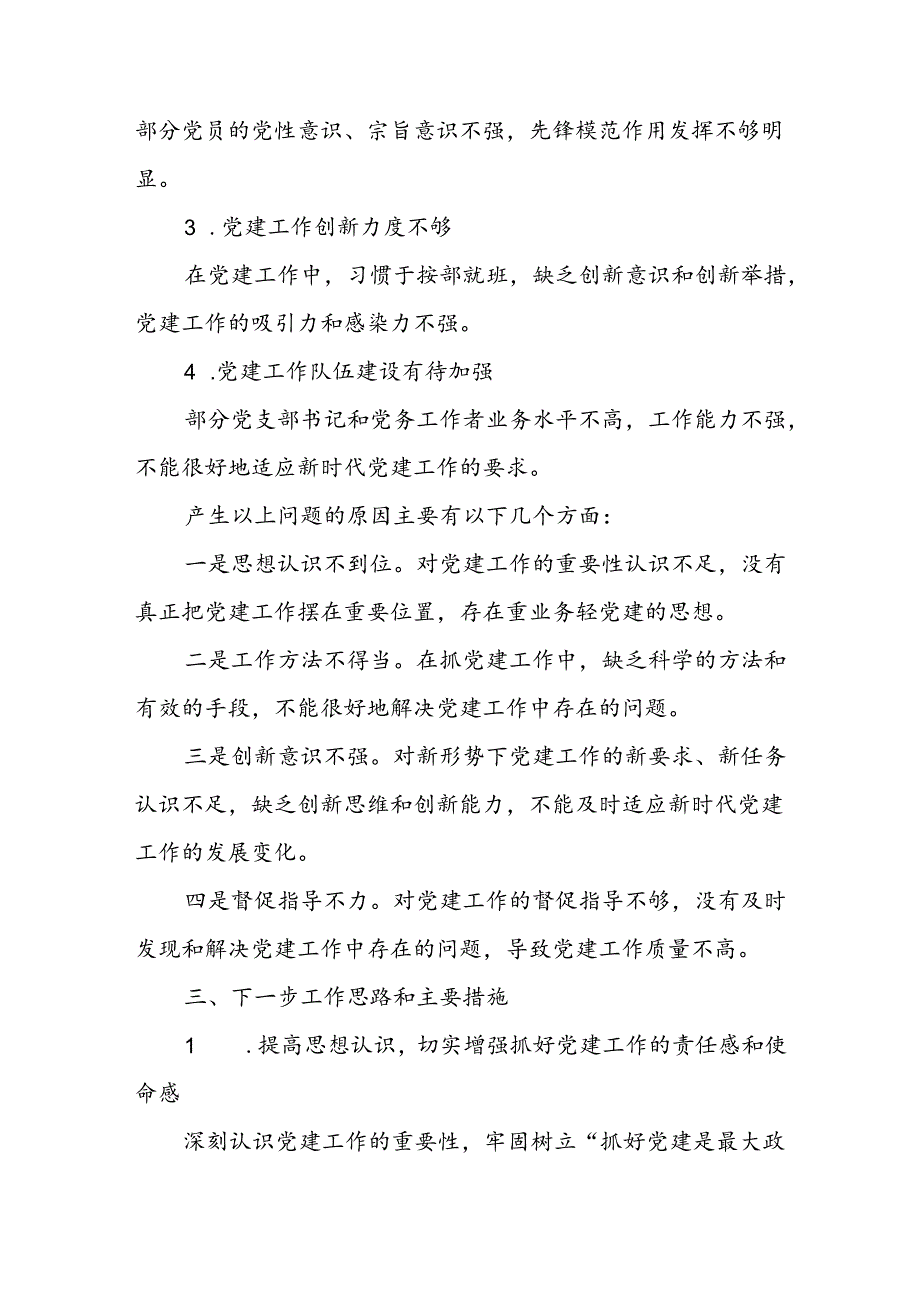 部分党员的党性意识、宗旨意识不强，先锋模范作用发挥不够明
显。
3 .党建工作创新力度不够
在党建工作中，习惯于按部就班，缺乏创新意识和创新举措，
党建工作的吸引力和感染力不强。
4 .党建工作队伍建设有待加强
部分党支部书记和党务工作者业务水平不高，工作能力不强，
不能很好地适应新时代党建工作的要求。
产生以上问题的原因主要有以下几个方面：
一是思想认识不到位。对党建工作的重要性认识不足，没有
真正把党建工作摆在重要位置，存在重业务轻党建的思想。
二是工作方法不得当。在抓党建工作中，缺乏科学的方法和
有效的手段，不能很好地解决党建工作中存在的问题。
三是创新意识不强。对新形势下党建工作的新要求、新任务
认识不足，缺乏创新思维和创新能力，不能及时适应新时代党建
工作的发展变化。
四是督促指导不力。对党建工作的督促指导不够，没有及时
发现和解决党建工作中存在的问题，导致党建工作质量不高。
三、下一步工作思路和主要措施
1 .提高思想认识，切实增强抓好党建工作的责任感和使
命感
深刻认识党建工作的重要性，牢固树立“抓好党建是最大政